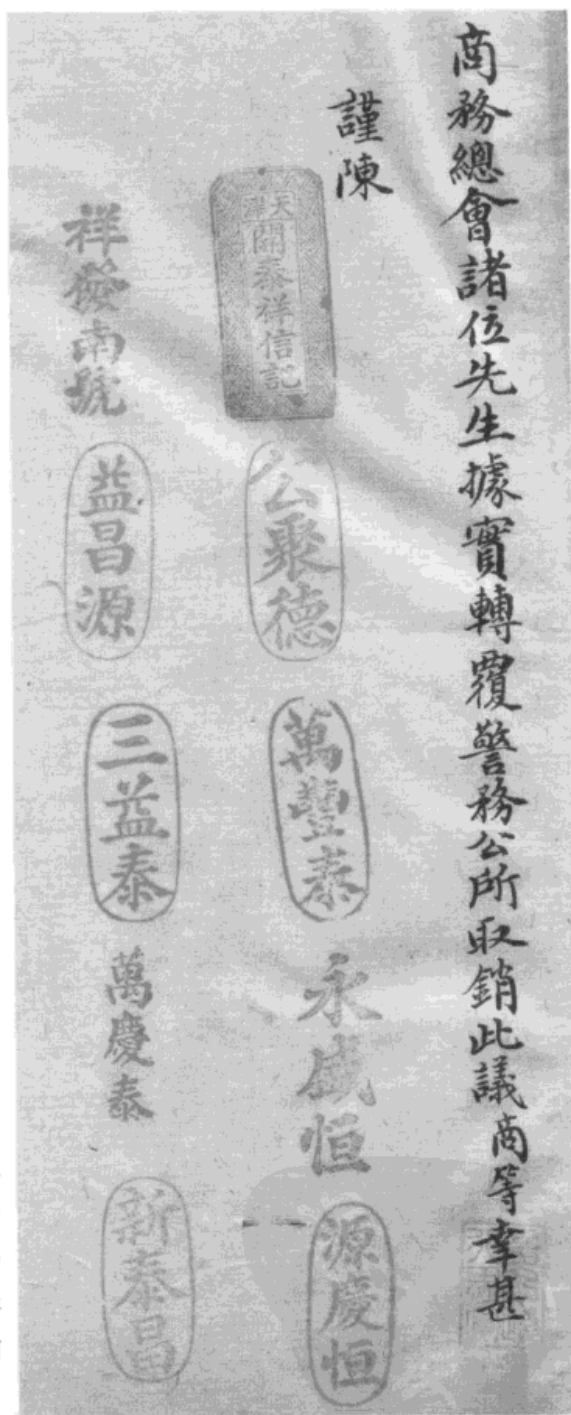 商務總會諸位先生據實轉覆警務公所取銷此議商等幸甚
謹陳
天津
開泰祥信記
公聚德
萬豐泰
永盛恒
源慶恒
祥發南號
益昌源
三益泰
萬慶泰
新泰昌